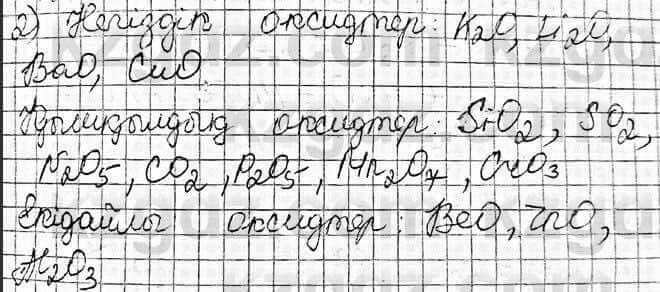 2) Негіздік оксидтер: K₂O, Li₂O,
BaO, CuO.
Қышқылдық оксидтер: SiO₂, SO₂,
N₂O₅, CO₂, P₂O₅, Mn₂O₇, CrO₃
Екідайлы оксидтер: BeO, ZnO,
Al₂O₃